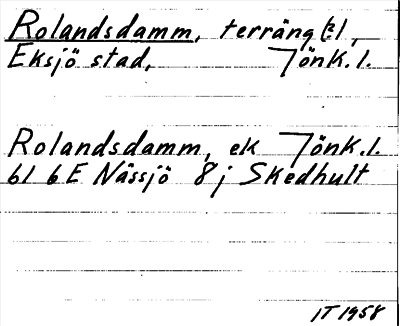 Rolandsdamm, terräng(?),
Eksjö stad, Jönk. l.
Rolandsdamm, ek Jönk. l.
bl 6E Nässjö 8j Skedhult
IT 1958